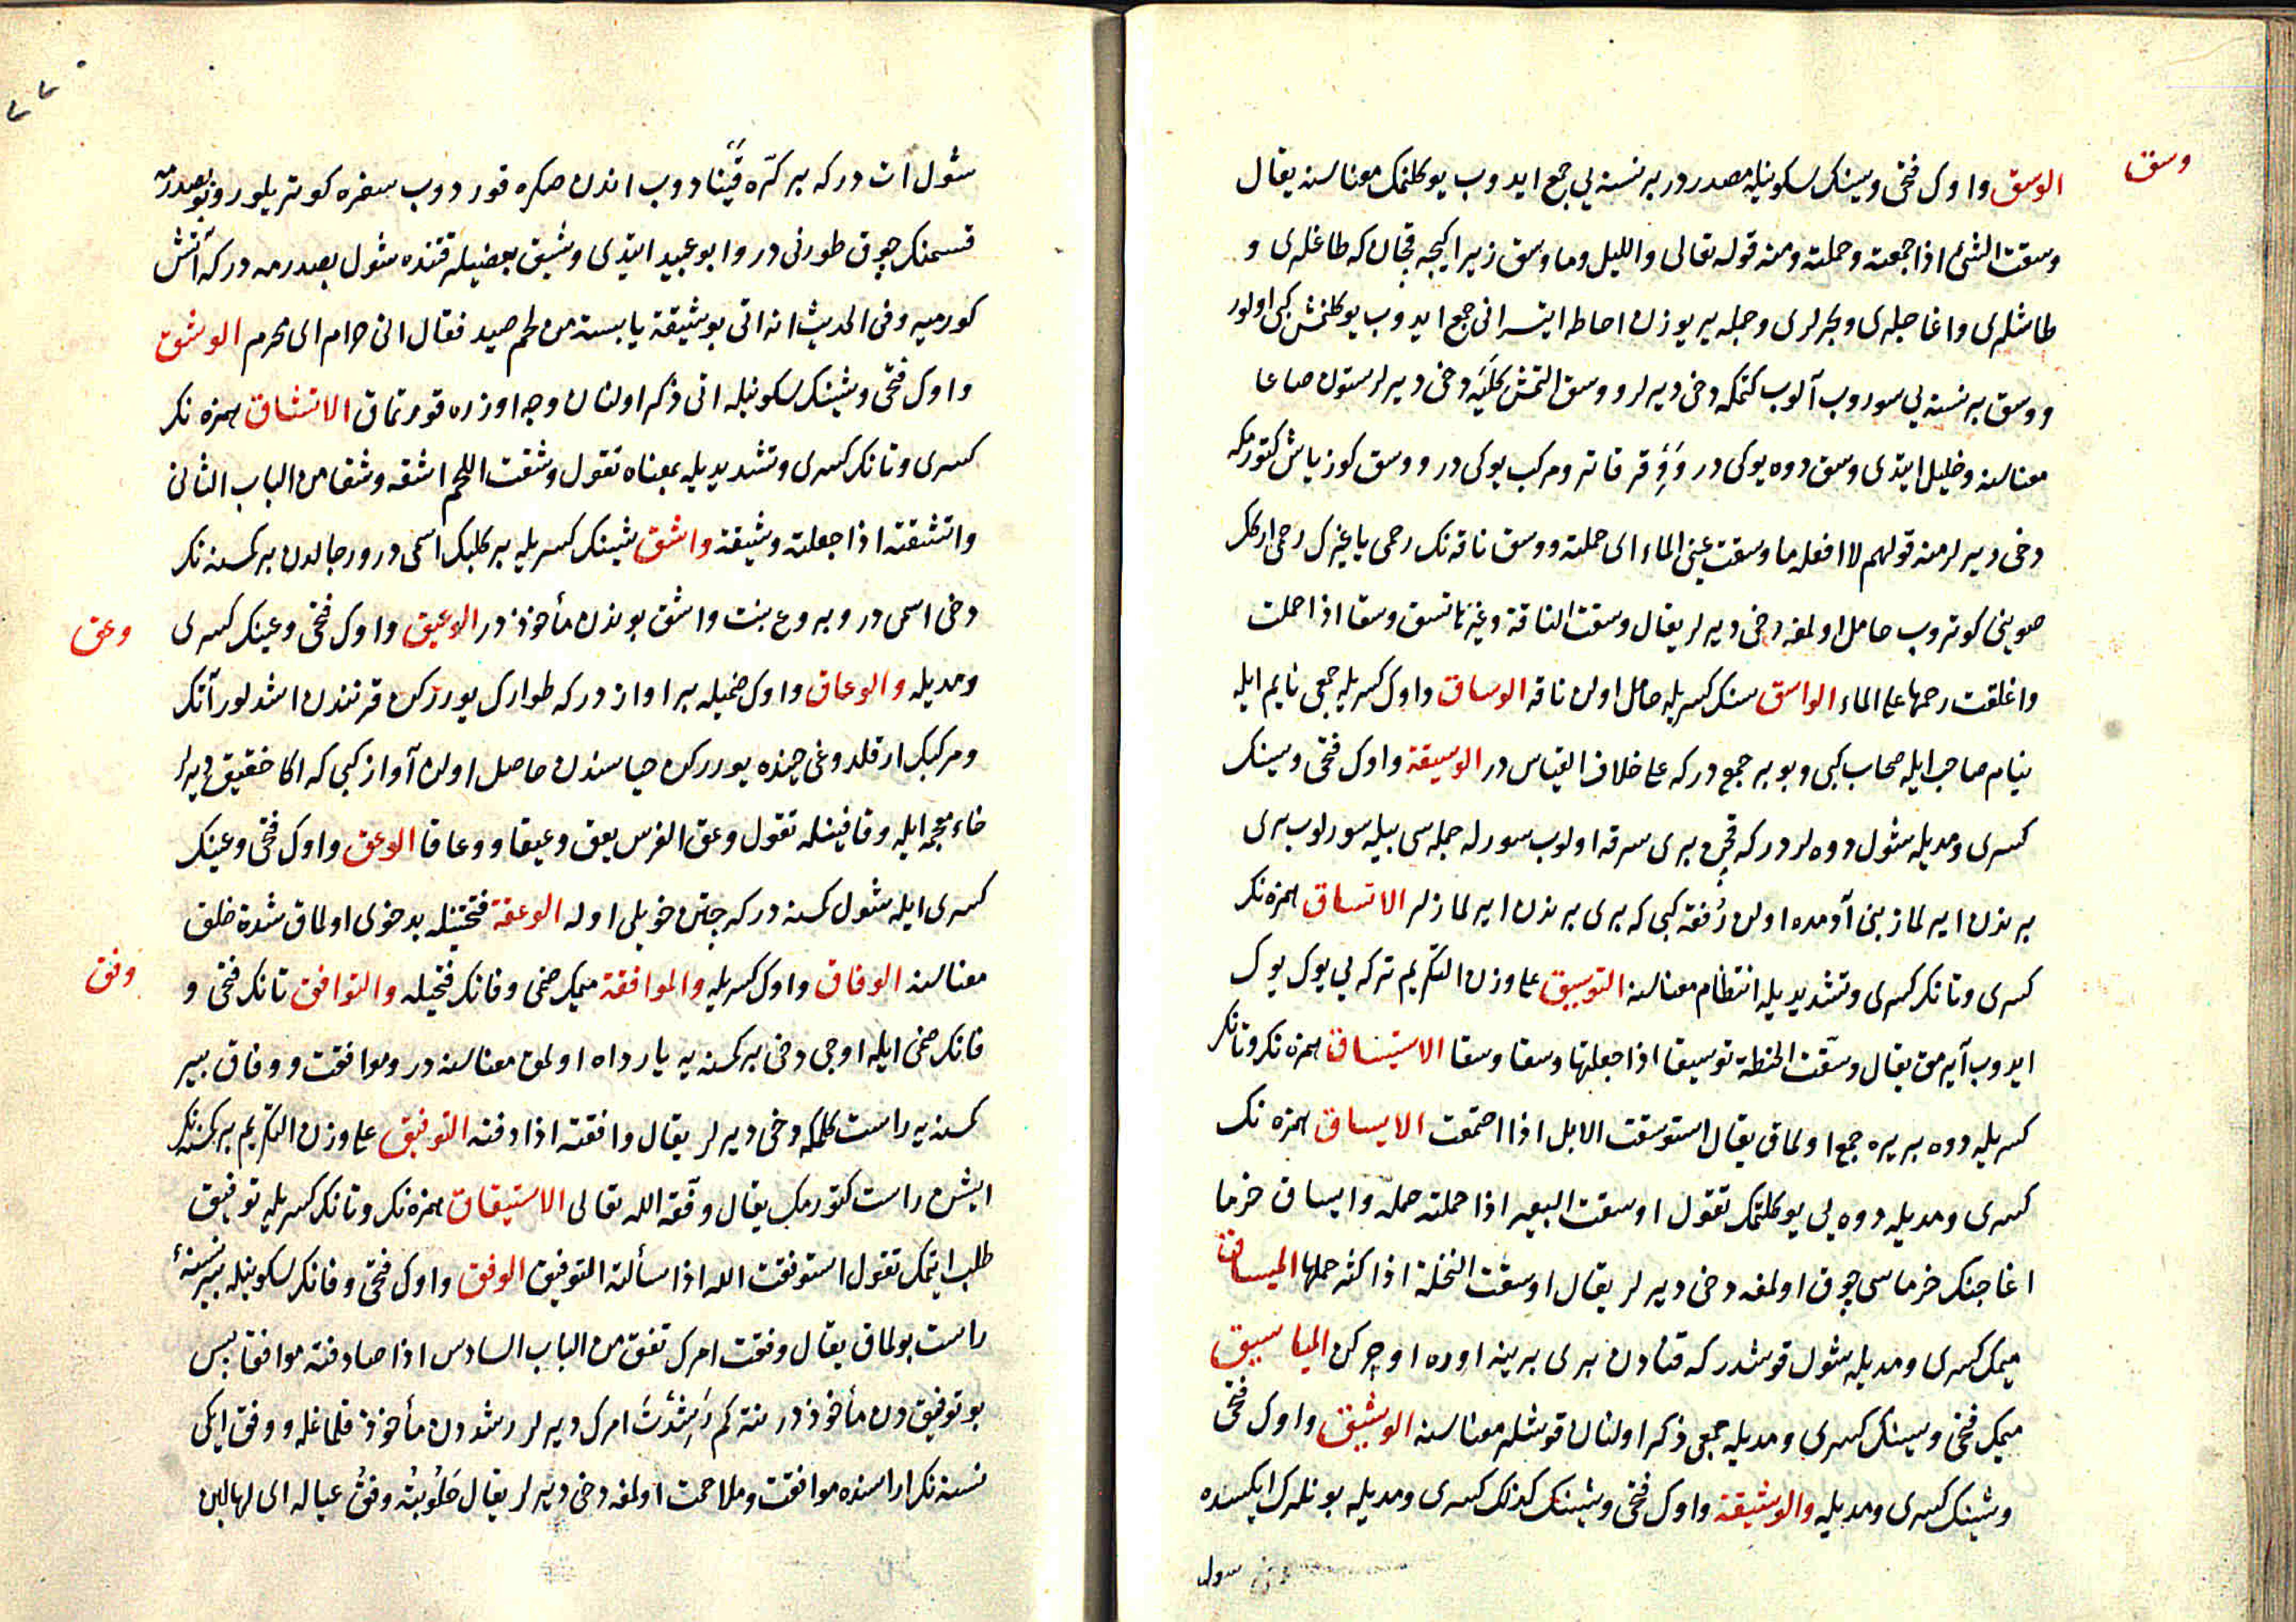 وسق
الوسق واوك فتحى وسينك سكونيله مصدردر بر نسنه يي جمع ايدوب يوكلتمك معناسنه يقال
وسقت الشئ اذا جمعته وحملته ومنه قوله تعالى والليل وما وسق زيرا كيجه قچان كه طاغلرى و
طاشلرى واغاجلرى وبحرلرى وجمله يريوزن احاطه ايتسه انى جمع ايدوب يوكلنمش كبى اولور
ووسق بر نسنه يي سوروب آلوب كتمكه دخى ديرلر ووسق التمش كليه دخى ديرلر ستون صاعا
معناسنه وخليل ايتدى وسق دوه يوكى در ووقر قاتر ومركب يوكى در ووسق كوز ياش كتورمكه
دخى ديرلر منه قولهم لا افعله ما وسقت عينى الماء اى حملته ووسق ناقه نك رحمى ياغيرك رحمى اركك
صوينى كوتروب حامل اولمغه دخى ديرلر يقال وسقت الناقة وغيرها تسق وسقا اذا حملت
واغلقت رحمها على الماء الواسق سنك كسريله حامل اولن ناقه الوساق واوك كسريله جمعى نايم ايله
نيام صاحب ايله صحاب كبى وبو بر جمع دركه على خلاف القياس در الوسيقة واوك فتحى وسينك
كسرى ومديله شول دوه لردركه قچن برى سرقه اولوب سورله جمله سى بيله سورلوب برى
برندن ايرلماز بنى آدمده اولن رفقه كبى كه برى برندن ايرلمازلر الاتساق همزه نك
كسرى وتانك كسرى وتشديديله انتظام معناسنه التوسيق على وزن التكريم تركه يي يوك يوك
ايدوب آيرمق يقال وسقت الحنطة توسيقا اذا جعلتها وسقا وسقا الاستيساق همزه نك وتانك
كسريله دوه بر يره جمع اولمق يقال استوسقت الابل اذا اجتمعت الايساق همزه نك
كسرى ومديله دوه يي يوكلتمك تقول اوسقت البعير اذا حملته حمله وايساق خرما
اغاجنك خرماسى چوق اولمغه دخى ديرلر يقال اوسقت النخلة اذا كثر حملها الميساق
ميمك كسرى ومديله شول قوشدركه قنادن برى برينه اوره اوچركن المياسيق
ميمك فتحى وسينك كسرى ومديله جمعى ذكر اولنان قوشلر معناسنه الوشيق واوك فتحى
وشينك كسرى ومديله والوشيقة واوك فتحى وشينك كذلك كسرى ومديله بونلرك ايكسنده
شول
شول ات دركه بر كره قينادوب اندن صكره قوردوب سفره كوتريلور وبو بصدرمه
قسمنك چوق طورنى در وابو عبيد ايتدى وشيق بعضيلر قتنده شول بصدرمه دركه آتش
كورميه وفى الحديث انه اتى بوشيقة يابسة من لحم صيد فقال انى حرام اى محرم الوشق
واوك فتحى وشينك سكونيله اتى ذكر اولنان وجه اوزره قورتمق الاتشاق همزه نك
كسرى وتانك كسرى وتشديديله بمعناه تقول وشقت اللحم اشقه وشقا من الباب الثانى
واتشقته اذا جعلته وشيقة واشق شينك كسريله بر كلبك اسمى در ورجالدن بر كسنه نك
دخى اسمى در وبروع بنت واشق بوندن مأخوذدر الوعيق واوك فتحى وعينك كسرى
وعق
ومديله والوعاق واوك ضميله بر اوازدركه طوارك يوررركن قرنندن اشدلور آنك
ومركبك ارقلدوغى حينده يوررركن حياسندن حاصل اولن آواز كبى كه اكا خقيق ديرلر
خاء معجمه ايله وقافينله تقول وعق الفرس يعق وعيقا ووعاقا الوعق واوك فتحى وعينك
كسرى ايله شول كسنه دركه چتن خويلى اوله الوعقة فتحتينله بدخوى اولمق شدة خلق
معناسنه الوفاق واوك كسريله والموافقة ميمك ضمى وفانك فتحيله والتوافق تانك فتحى و
وفق
فانك ضمى ايله اوچى دخى بر كسنه يه يار داه اولمق معناسنه در وموافقت ووفاق بر
كسنه يه راست كلمكه دخى ديرلر يقال وافقته اذا دفته التوفيق على وزن التكريم بر كسنه نك
ايشن راست كتورمك يقال وفقه الله تعالى الاستيفاق همزه نك وتانك كسريله توفيق
طلب ايتمك تقول استوفقت الله اذا سألته التوفيق الوفق واوك فتحى وفانك سكونيله بر نسنه يي
راست بولمق يقال وفقت امرك تفق من الباب السادس اذا صادفته موافقا پس
بو توفيق دن مأخوذدر نته كم رشدت امرك ديرلر رشددن مأخوذ فلما غله ووفق ايكى
نسنه نك اراسنده موافقت وملاحمت اولمغه دخى ديرلر يقال حلوبته وفق عياله اى لها لبن